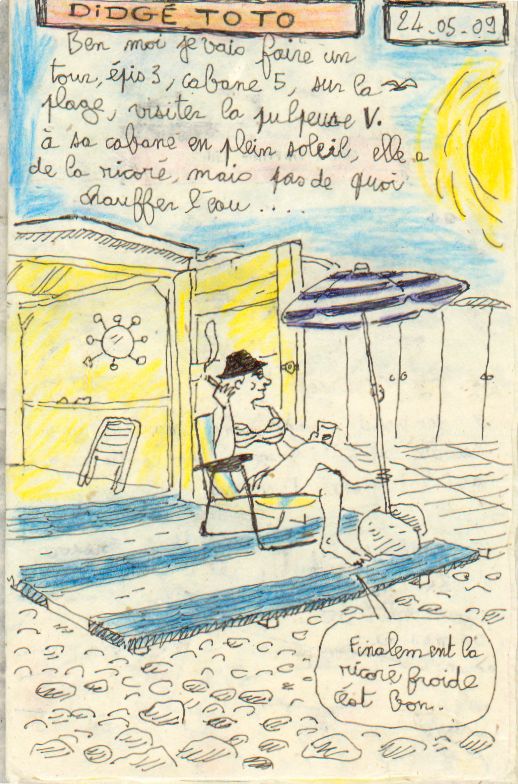 DiDGÉ TOTO
24.05.09
Ben moi je vais faire un
tour, épis 3, cabane 5, sur la
plage, visiter la pulpeuse V.
à sa cabane en plein soleil, elle a
de la ricoré, mais pas de quoi
chauffer l'eau.....
Finalement la
ricoré froide
c'est bon..